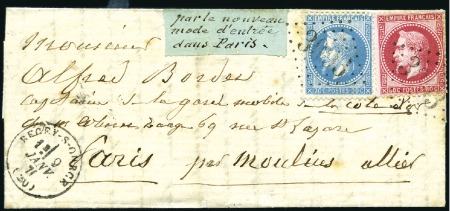 par le nouveau
mode d'entrée
dans Paris.
EMPIRE FRANÇAIS
EMPIRE FRANÇAIS
Monsieur
Alfred Bordes
capitaine de la garde mobile de la côte d'or
69 rue St Lazare
Paris par Moulins allier
1E
9
JANV
71
(20)